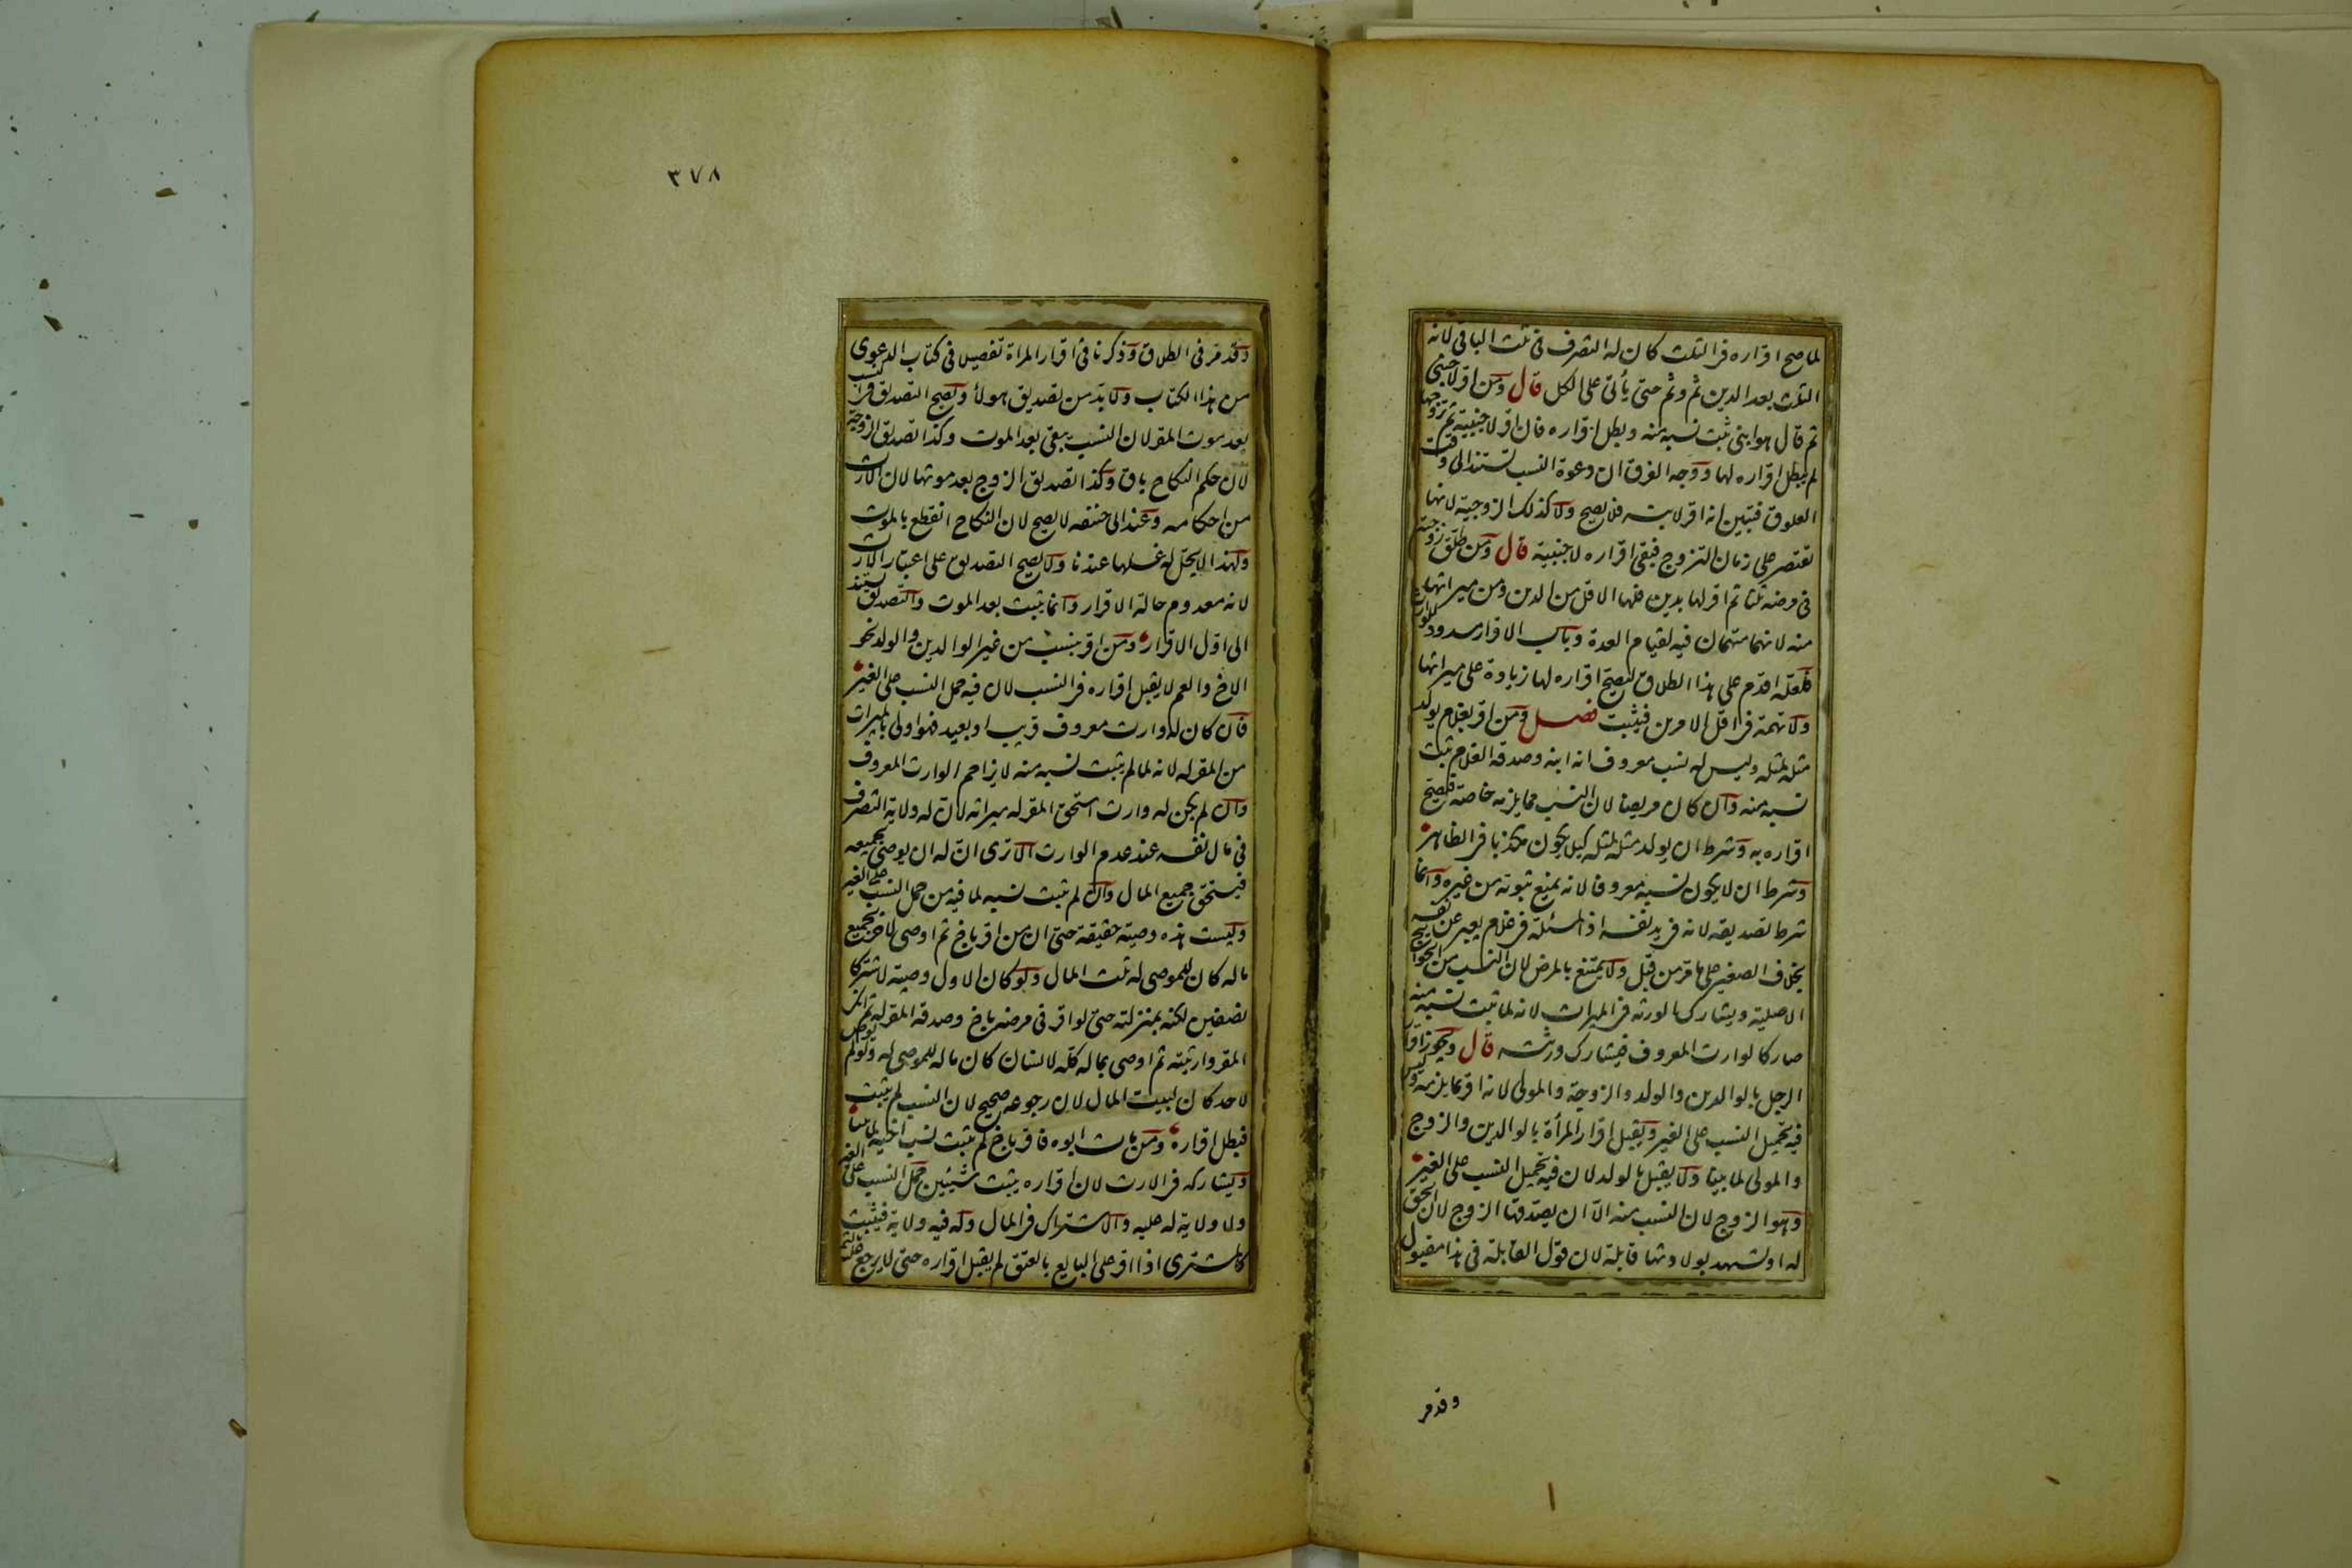 لما صح اقراره فى الثلث كان له التصرف فى ثلث الباقى لانه
الثلث بعد الدين ثم وثم حتى يأتى على الكل قال ومن اقر لاجنبى
ثم قال هو ابنى ثبت نسبه منه وبطل اقراره فان اقر لاجنبية ثم تزوجها
لم يبطل اقراره لها ووجه الفرق ان دعوة النسب تستند الى وقت
العلوق فتبين انه اقر لابنه فلا يصح ولا كذلك الزوجية لانها
تقتصر على زمان التزوج فبقى اقراره لاجنبية قال ومن طلق زوجته
فى مرضه ثلثا ثم اقر لها بدين فلها الاقل من الدين ومن ميراثها
منه لانهما متهمان فيه لقيام العدة وباب الاقرار مسدود للوارث
فلعله اقدم على هذا الطلاق ليصح اقراره لها زيادة على ميراثها
ولا تهمة فى اقل الامرين فيثبت فصل ومن اقر بغلام يولد
مثله لمثله وليس له نسب معروف انه ابنه وصدقه الغلام ثبت
نسبه منه وان كان مريضا لان النسب مما يلزمه خاصة فيصح
اقراره به وشرط ان يولد مثله لمثله كيلا يكون مكذبا فى الظاهر
وشرط ان لا يكون نسبه معروفا لانه يمنع ثبوته من غيره وانما
شرط تصديقه لانه فى يد نفسه اذ المسئلة فى غلام يعبر عن نفسه
بخلاف الصغير على ما مر من قبل ولا يمتنع بالمرض لان النسب من الحوائج
الاصلية ويشارك الورثة فى الميراث لانه لما ثبت نسبه منه
صار كالوارث المعروف فيشارك ورثته قال ويجوز اقرار
الرجل بالوالدين والولد والزوجة والمولى لانه اقر بما يلزمه وليس
فيه تحميل النسب على الغير ويقبل اقرار المرأة بالوالدين والزوج
والمولى لما بينا ولا يقبل بالولد لان فيه تحميل النسب على الغير
وهو الزوج لان النسب منه الا ان يصدقها الزوج لان الحق
له او يشهد بولادتها قابلة لان قول القابلة فى هذا مقبول
وقد مر
٣٧٨
وقد مر فى الطلاق وذكرنا فى اقرار المراة تفصيلا فى كتاب الدعوى
من هذا الكتاب ولا بد من تصديق هولاء ويصح التصديق فى النسب
بعد موت المقر لان النسب يبقى بعد الموت وكذا تصديق الزوجة
لان حكم النكاح باق وكذا تصديق الزوج بعد موتها لان الارث
من احكامه وعند ابى حنيفه لا يصح لان النكاح انقطع بالموت
ولهذا لا يحل له غسلها عندنا ولا يصح التصديق على اعتبار الارث
لانه معدوم حالة الاقرار وانما يثبت بعد الموت والتصديق يستند
الى اول الاقرار ومن اقر بنسب من غير الوالدين والولد نحو
الاخ والعم لا يقبل اقراره فى النسب لان فيه حمل النسب على الغير
فان كان له وارث معروف قريب او بعيد فهو اولى بالميراث
من المقر له لانه لما لم يثبت نسبه منه لا يزاحم الوارث المعروف
وان لم يكن له وارث استحق المقر له ميراثه لان له ولاية التصرف
فى مال نفسه عند عدم الوارث الا ترى ان له ان يوصى بجميعه
فيستحق جميع المال وان لم يثبت نسبه لما فيه من حمل النسب على الغير
وليست هذه وصية حقيقة حتى ان من اقر باخ ثم اوصى لاخر بجميع
ماله كان للموصى له ثلث المال ولو كان الاول وصية لاشتركا
نصفين لكنه بمنزلته حتى لو اقر فى مرضه باخ وصدقه المقر له ثم انكر
المقر وارثته ثم اوصى بماله كله لانسان كان ماله للموصى له ولو لم يوص
لاحد كان لبيت المال لان رجوعه صحيح لان النسب لم يثبت
فبطل اقراره ومن مات ابوه فاقر باخ لم يثبت نسب اخيه لما بينا
ويشاركه فى الارث لان اقراره يثبت شيئين حمل النسب على الغير
ولا ولاية له عليه والاشتراك فى المال وله فيه ولاية فيثبت
كالمشترى اذا اقر على البايع بالعتق لم يقبل اقراره حتى لا يرجع عليه بالثمن